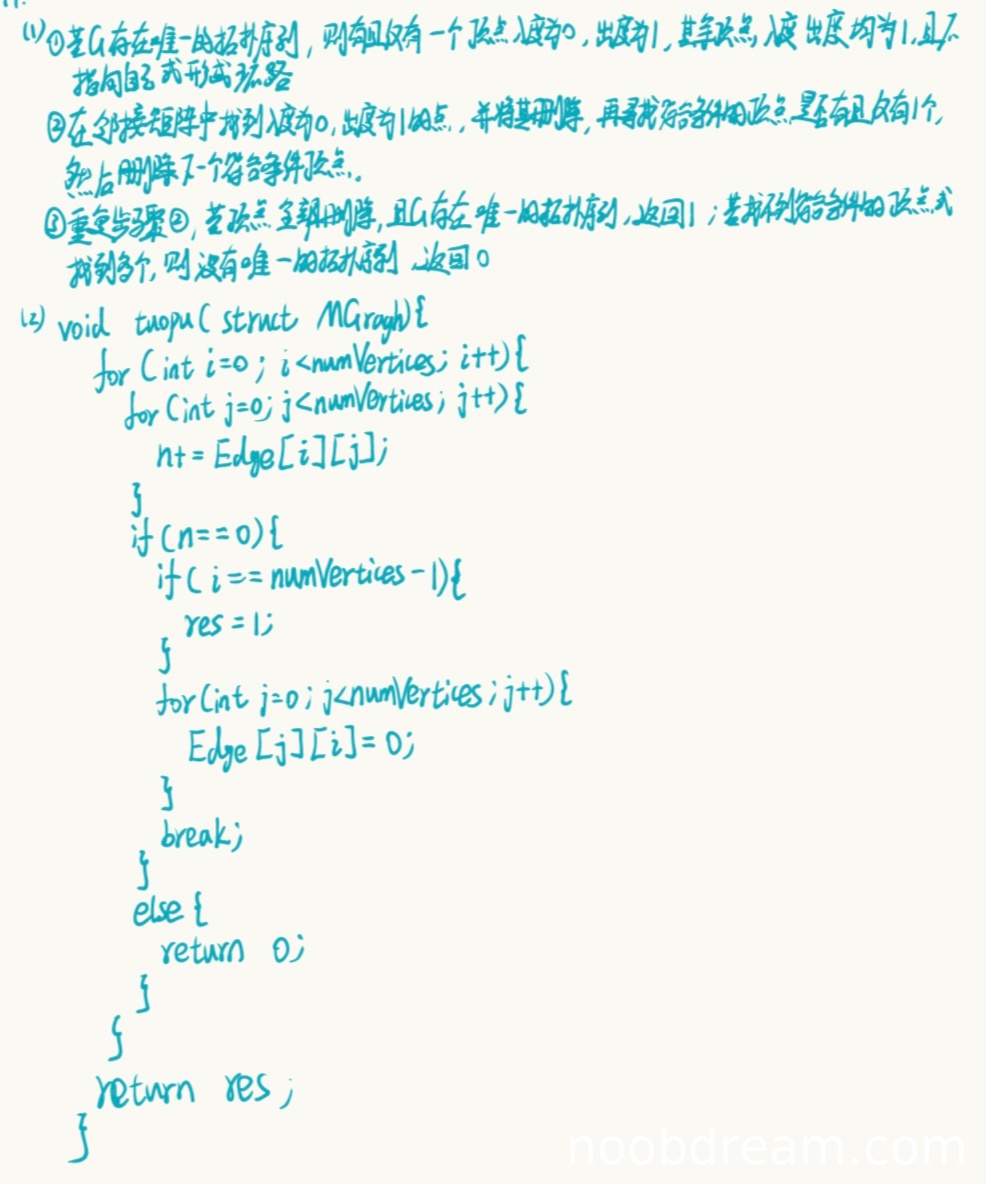 (1) ①若G存在唯一的拓扑序列，则有且仅有一个顶点入度为0，出度为1，其余顶点入度出度均为1，且不
指向自己或形成环路
②在邻接矩阵中找到入度为0，出度为1的点，并将其删除，再寻找符合条件的顶点是否有且仅有1个，
然后删除下一个符合条件顶点。
③重复步骤②，若顶点全部删除，且G存在唯一的拓扑序列，返回1；若找不到符合条件的顶点或
找到多个，则没有唯一的拓扑序列，返回0
(2) void tuopu( struct MGragh){
for (int i=0; i<numVertices; i++){
for (int j=0; j<numVertices; j++){
n+= Edge[i][j];
}
if (n==0){
if( i== numVertices-1){
res=1;
}
for(int j=0; j<numVertices; j++){
Edge[j][i]=0;
}
break;
}
else{
return 0;
}
}
return res;
}
noobdream.com